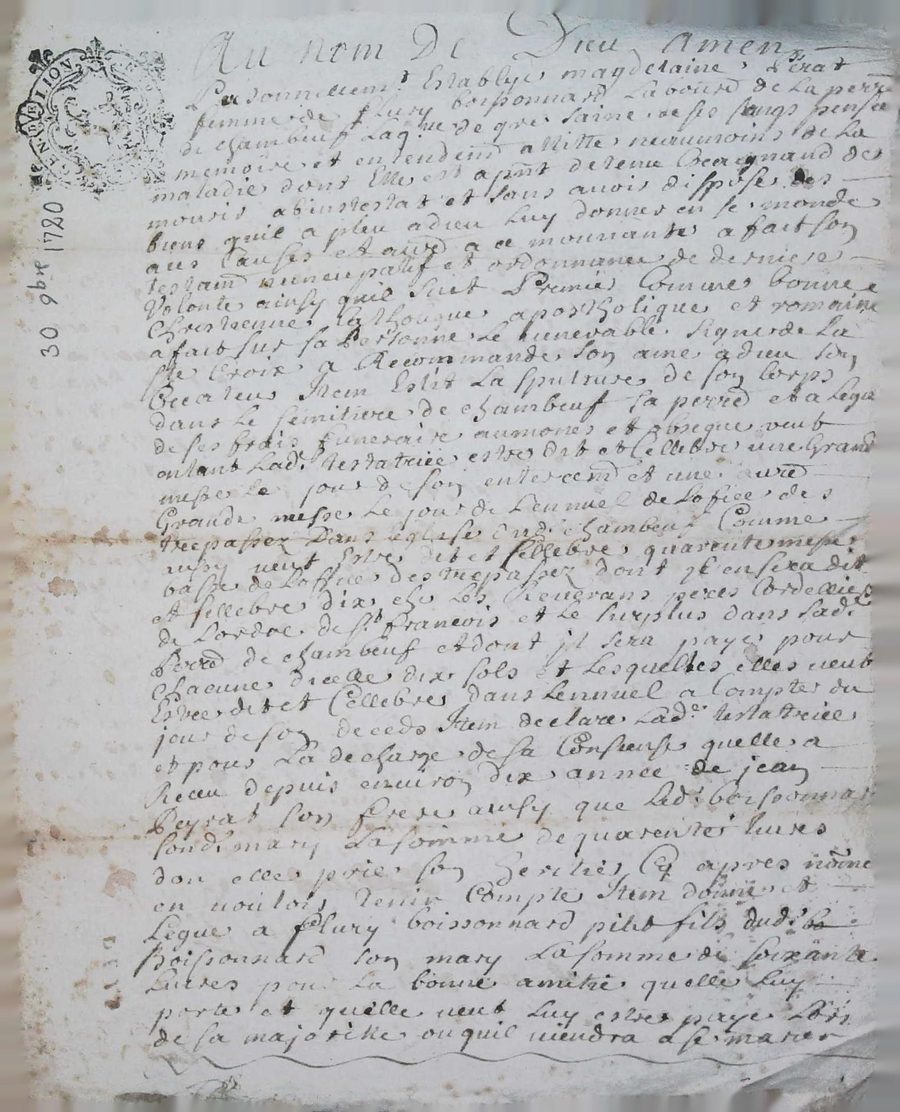 GENE DE LION
30 9bre 1720
Au nom De Dieu amen
Personnellemt Establye magdelaine Peirat
femme de fleury boissonnard Laboureur de La perre
de chambeuf Laqlle de gre saine de ses sangs pensée
memoire et entendemt allitte neaumoins de La
maladie dont Elle est apnt detenue Craignand de
mourir abintestat et sans avoir dispose des
biens quil a pleu adieu Luy donner en se monde
aus Causes et a ce mouuante a fait son
testamt nuncupatif et ordonnance de derniere
Volonte ainsy quil suit Premier Comme bonne
Chrestienne Catholique apostholique et romaine
a fait sur sa Personne Le Venerable signe de La
ste Croix a Recommande son ame adieu son
Createur Item Eslit La spulture de son Corps
dans Le semitiere de chambeuf sa perre et a Legard
de ses frais funeraire aumones et obseque veut
entant Lade testatrice estre dit et Cellebre une Grand
messe Le jour de son enterremt et une autre
Grande messe Le jour de Lennuel de Loffice des
trepassez Dans Leglise dudt chambeuf Comme
aussy veut Estre dit et Cellebre quarente messe
basse de Loffice des trepassez dont jl en sera dit
et sellebre dix chez Les Reverans peres Cordelliers
de Lordre de St francois et Le surplus dans lade
Perre de chambeuf et dont jl sera paye pour
Chacune dicelle dix sols et Lesquelles elles veut
Estre dit et Cellebre dans Lennuel a Compter du
jour de son deceds Item declare Lade testatrice
et pour La decharge de sa Consience quelle a
Receu depuis environ dix annee de jean
Peyrat son frere aussy que Ledt boissonnard
sondt mary La somme de quarente livres
don elle prie son heritier Cy apres nomme
en vouloir tenir Compte Item donne et
Legue a fleury boissonnard petit fils dudt bo
boissonnard son mary La somme de soixante
Livres pour La bonne amitie quelle Luy
porte et quelle veut Luy estre paye Lors
de sa majoritte ou quil viendra a se marier